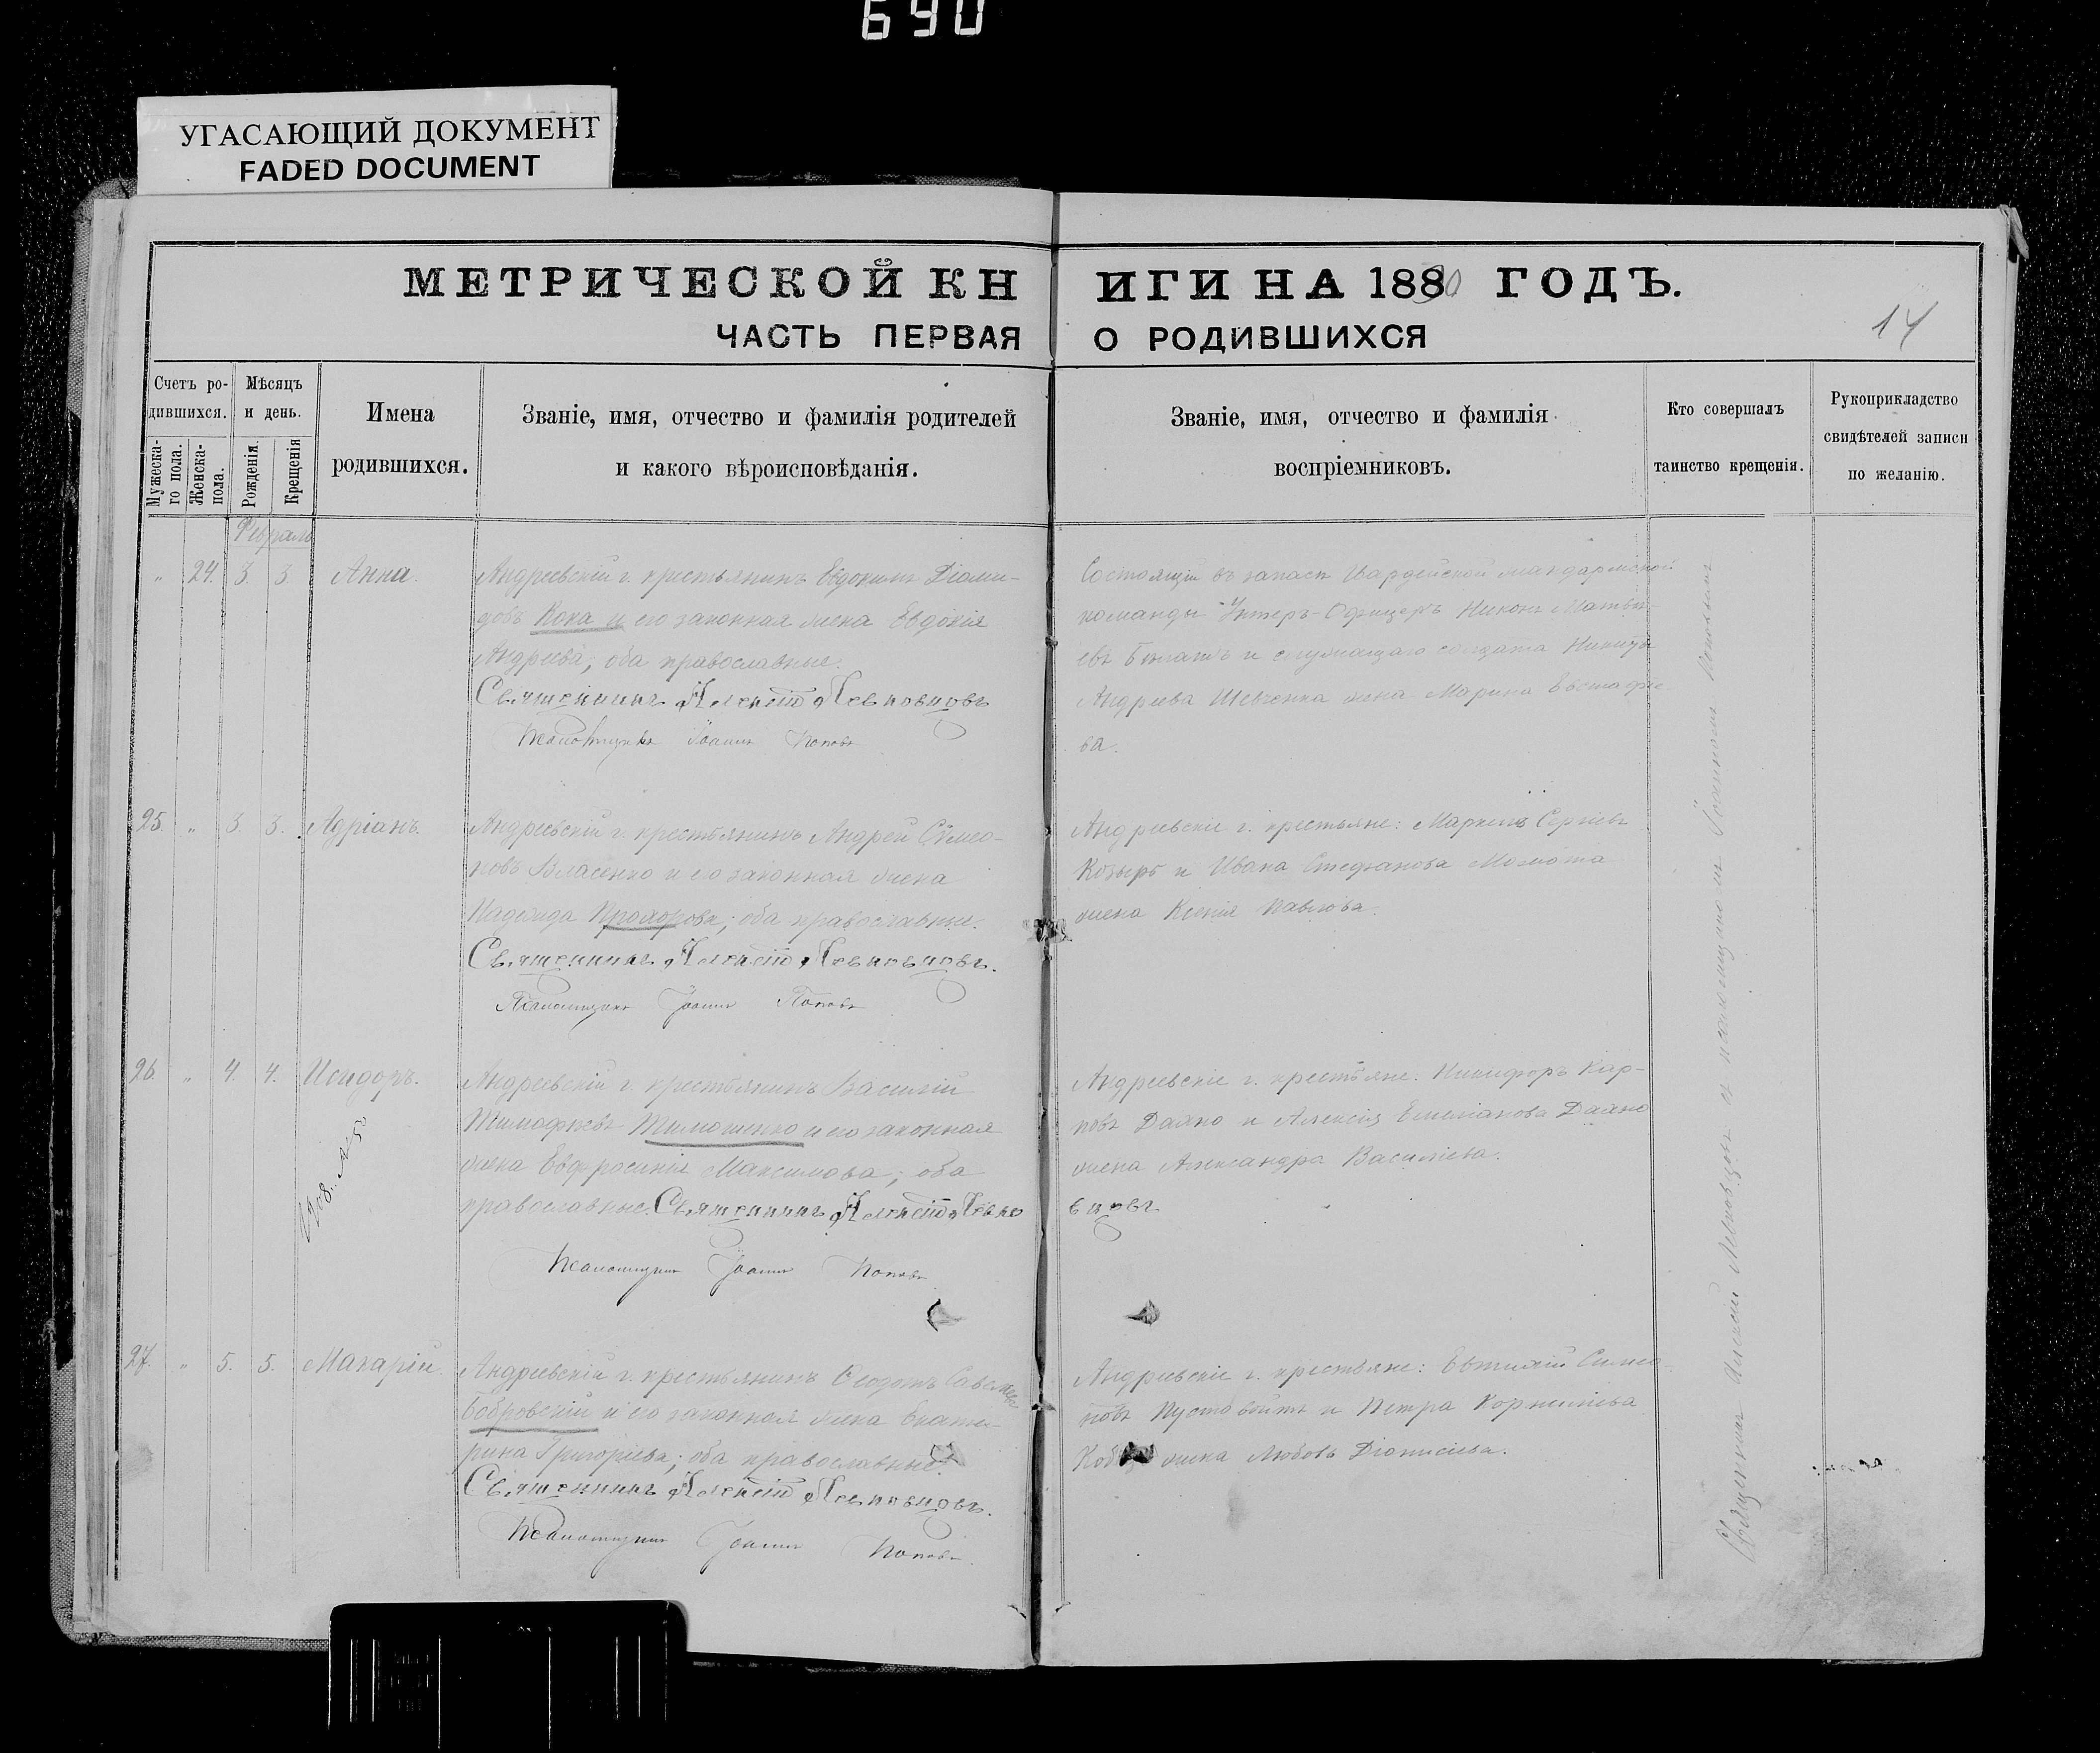 690
УГАСАЮЩИЙ ДОКУМЕНТ
FADED DOCUMENT
МЕТРИЧЕСКОЙ КНИГИ НА 1890 ГОДЪ.
ЧАСТЬ ПЕРВАЯ О РОДИВШИХСЯ
14
Счетъ ро-
дившихся.
Мужеска-
го пола.
Женска-
пола.
Мѣсяцъ
и день.
Рожденія.
Крещенія
Имена
родившихся.
Званіе, имя, отчество и фамилія родителей
и какого вѣроисповѣданія.
Званіе, имя, отчество и фамилія
воспріемниковъ.
Кто совершалъ
таинство крещенія.
Рукоприкладство
свидѣтелей записи
по желанію.
Февраль
" 24. 3. 3. Анна.
Андреевскій г. крестьянинъ Евдокимъ Діоми-
довъ Кока и его законная жена Евдокія
Андреева; оба православные.
Священникъ Алексій Левковцовъ
Псаломщикъ Іоаннъ Поповъ
Состоящій въ запасѣ Гвардейской жандармской
команды Унтеръ-Офицеръ Никонъ Матвѣ-
евъ и служащаго солдата Никиты
Андреева Шевченка жена Марина Евстафіе
ва.
25. " 3. 3. Адріанъ.
Андреевскій г. крестьянинъ Андрей Симео-
новъ Власенко и его законная жена
Надежда Прохорова; оба православные.
Священникъ Алексій Левковцовъ.
Псаломщикъ Іоаннъ Поповъ
Андреевскіе г. крестьяне: Маркъ Сергіевъ
Козырь и Ивана Стефанова Момота
жена Ксенія Павлова.
26. " 4. 4. Исидоръ.
Андреевскій г. крестьянинъ Василій
Тимофѣевъ Тимошенко и его законная
жена Евфросинія Максимова; оба
православные. Священникъ Алексій Левко
вцовъ
Псаломщикъ Іоаннъ Поповъ
Андреевскіе г. крестьяне: Никифоръ Кар-
повъ Данко и Алексія Емеліанова Данко
жена Александра Василіева.
27. " 5. 5. Макарій.
Андреевскій г. крестьянинъ Ѳеодотъ Савеліевъ
Бобровскій и его законная жена Екате-
рина Григоріева; оба православные.
Священникъ Алексій Левковцовъ.
Псаломщикъ Іоаннъ Поповъ.
Андреевскіе г. крестьяне: Евтихій Симео-
новъ Пустовойтъ и Петра Корнеліева
жена Любовь Діонисіева.
Священникъ Алексій Левковцовъ съ псаломщикомъ Іоанномъ Поповымъ